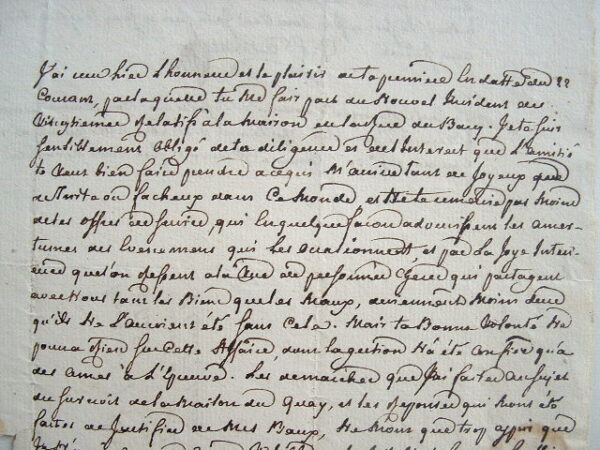 J'ai reçu hier L'honneur et le plaisir de ta première En datte du 22
Courant, par laquelle tu Me fais part du Nouvel Incident des
Vingtièmes Relatifs à la Maison en la rue du Bacq. Je te suis
sensiblement obligé de ta diligence et de l'Interest que L'amitié
te veut bien faire prendre à ce qui M'arrive tant de Joyeux que
de Triste ou facheux dans Ce Monde et Ne te remercie pas Moins
de tes offres de service, qui En quelque façon adoucissent les amer-
tumes des Evenements qui Les occasionnent, et par La Joye Interi-
eure qu'on Ressent à la Vue de personnes Cheres qui partagent
avec Nous tant les Biens que les Maux, deviennent Moins durs
qu'ils Ne L'auroient été sans Cela. Mais ta Bonne Volonté Ne
pourra Rien sur Cette Affaire, dont la gestion N'a été confiée qu'à
des ames à L'épreuve. Les demarches que J'ai faites au sujet
du surcroit de la Maison du Quay, et les Réponses qui M'ont été
faites de Justifier de Mes Baux, Ne M'ont que trop appris que